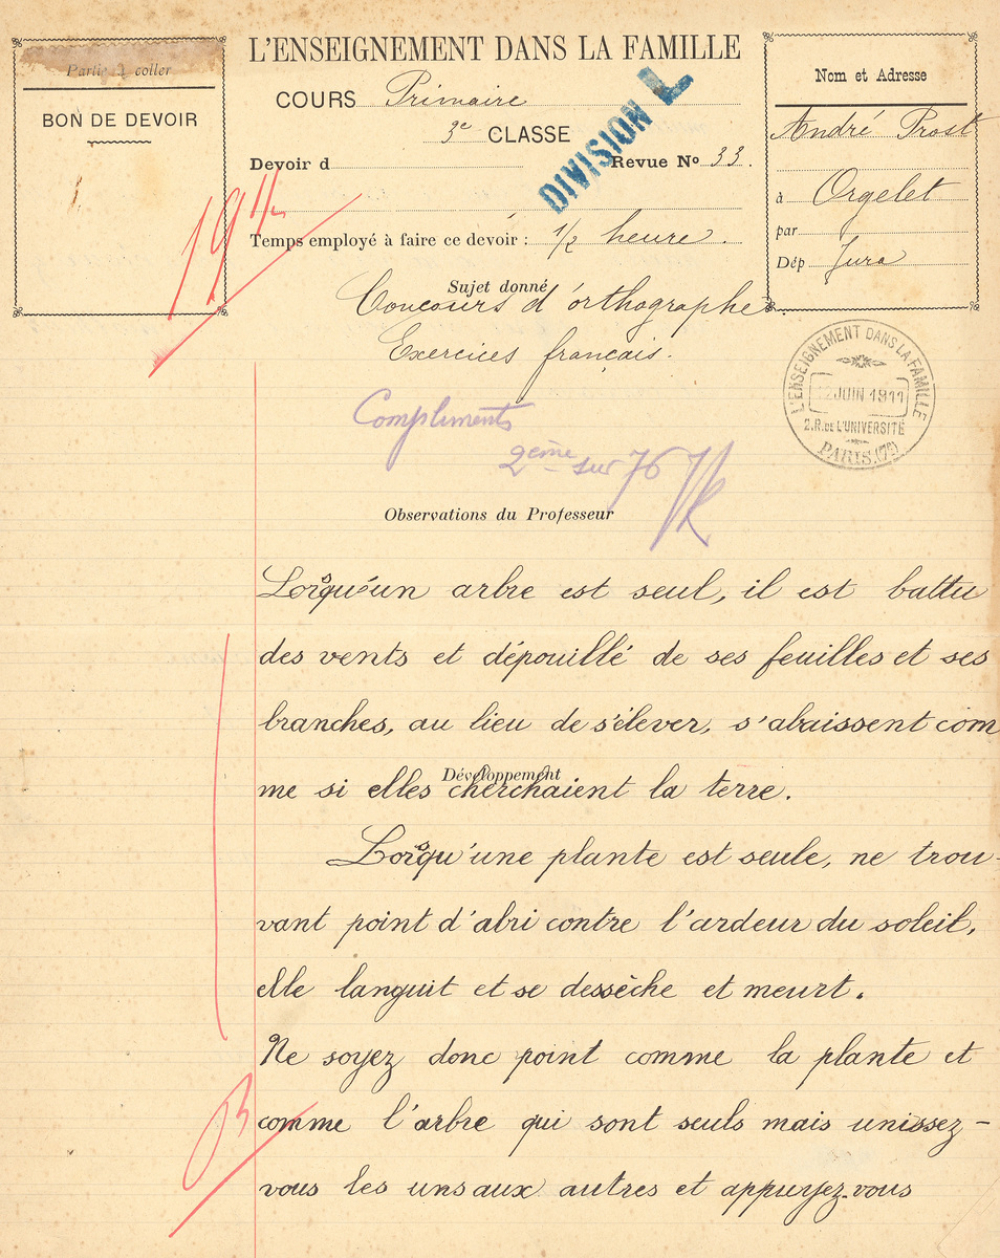 L'ENSEIGNEMENT DANS LA FAMILLE
Partie à coller
BON DE DEVOIR
COURS Primaire
3e CLASSE
Devoir d
Revue No 33.
DIVISION L
Temps employé à faire ce devoir : 1/2 heure.
Nom et Adresse
André Prost
à Orgelet
par
Dép Jura
19 1/2
Sujet donné
Concours d'orthographe.
Exercices français.
L'ENSEIGNEMENT DANS LA FAMILLE
JUIN 1911
2.R. DE L'UNIVERSITÉ
PARIS.(7e)
Compliments
2ème sur 76
Observations du Professeur
Lorsqu'un arbre est seul, il est battu
des vents et dépouillé de ses feuilles et ses
branches, au lieu de s'élever, s'abaissent com
Développement
me si elles cherchaient la terre.
Lorsqu'une plante est seule, ne trou-
vant point d'abri contre l'ardeur du soleil,
elle languit et se dessèche et meurt.
Ne soyez donc point comme la plante et
comme l'arbre qui sont seuls mais unissez-
vous les uns aux autres et appuyez-vous